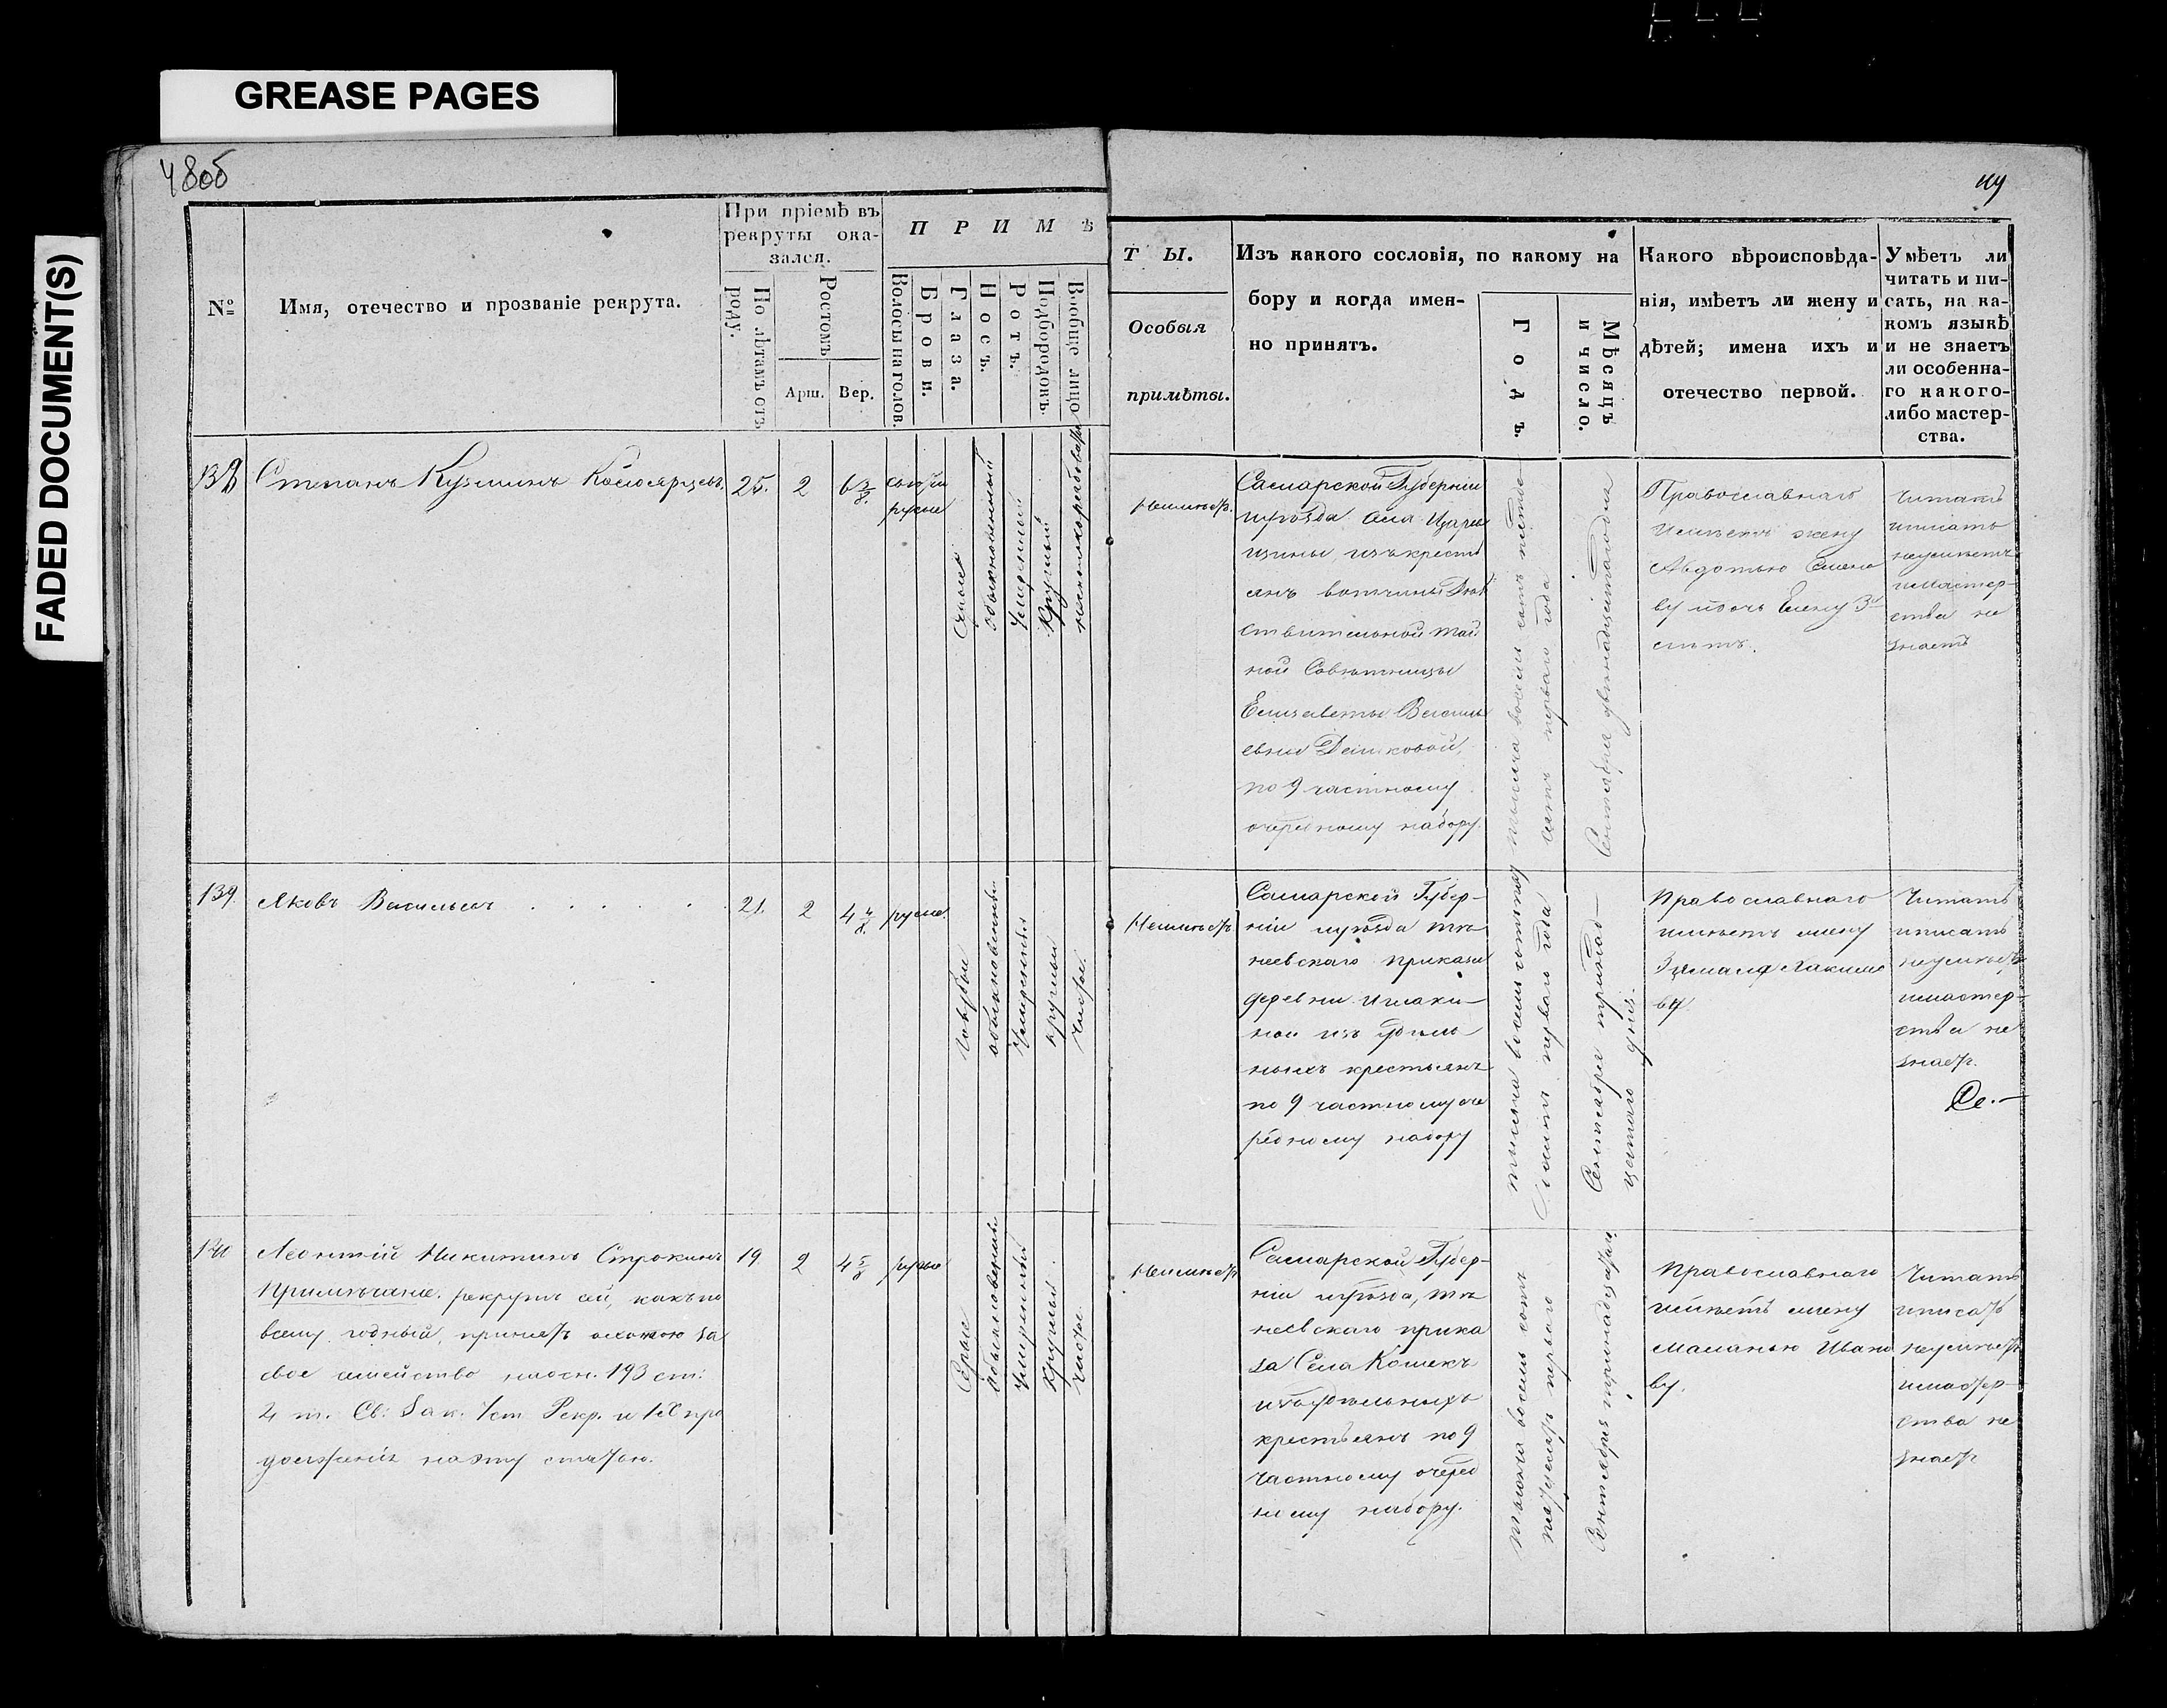 GREASE PAGES
FADED DOCUMENT(S)
48об
49
№
Имя, отечество и прозваніе рекрута.
При пріемѣ въ
рекруты ока-
зался.
По лѣтамъ отъ
роду.
Ростомъ
Арш.
Вер.
П Р И М Ѣ
Волосы на голов.
Брови.
Глаза.
Носъ.
Ротъ.
Подбородокъ.
Вообще лицо
Т Ы.
Особыя
примѣты.
Изъ какого сословія, по какому на
бору и когда имен-
но принятъ.
Годъ.
Мѣсяцъ
и число.
Какого вѣроисповѣда-
нія, имѣетъ ли жену и
дѣтей; имена ихъ и
отечество первой.
Умѣетъ ли
читать и пи-
сать, на ка-
комъ языкѣ
и не знаетъ
ли особенна-
го какого-
либо мастер-
ства.
138
Степанъ Кузминъ
25.
2
6 3/8.
русые
обыкновенный
Умѣренный
Круглый
Неимѣетъ.
Самарской Губерніи
иуѣзда села Царев
щины, изъ крестья
янъ вотчины Дѣй
ствительной Тай
ной Совѣтницы
Елизаветы Василь
евны Дашковой,
по 9 частному
очередному набору.
тысяча восемь сотъ пятьде
сятъ перваго года
Сентября двѣнадцатаго дня
Православнаго
Имѣетъ жену
Авдотью Семено
ву идочь Елену 3х
лѣтъ.
Читать
иписать
неумѣетъ
имастер-
ства не
знаетъ
139.
Яковъ Васильевъ . . . . . .
21.
2
4 4/8.
русые.
Голубые
обыкновенный
Умѣренный
круглый
чистое.
Неимѣетъ.
Самарской Губер-
ніи иуѣзда
неевскаго приказа
деревни
ной изъ удѣль
ныхъ крестьянъ
по 9 частному оче
редному набору
тысяча восемьсотъ пять
десятъ перваго года
Сентября тринад-
цатаго дня.
Православнаго
имѣетъ жену
ву
Читать
иписать
неумѣетъ
имастер-
ства не
знаетъ.
140
Леонтій Никитинъ Строкинъ
Примѣчаніе. рекрутъ сей, какъ по
всему годный, принятъ охотою за
свое семейство наосн. 193 ст:
4 т. Св: Зак. Уст. Рекр. и
долженія на эту статью.
19
2
4 5/8
русые
Сѣрые
обыкновенный
Умѣренный
Круглый.
чистое.
Неимѣетъ
Самарской Губер-
ніи иуѣзда,
неевскаго прика
за Села Кошекъ
изъ удѣльныхъ
крестьянъ по 9
частному очеред
ному набору.
тысяча восемь сотъ
пятьдесятъ перваго
Сентября тринадцатаго
Православнаго
имѣетъ жену
Маланью Ивано
ву.
Читать
иписать
неумѣетъ
имастер-
ства не
знаетъ